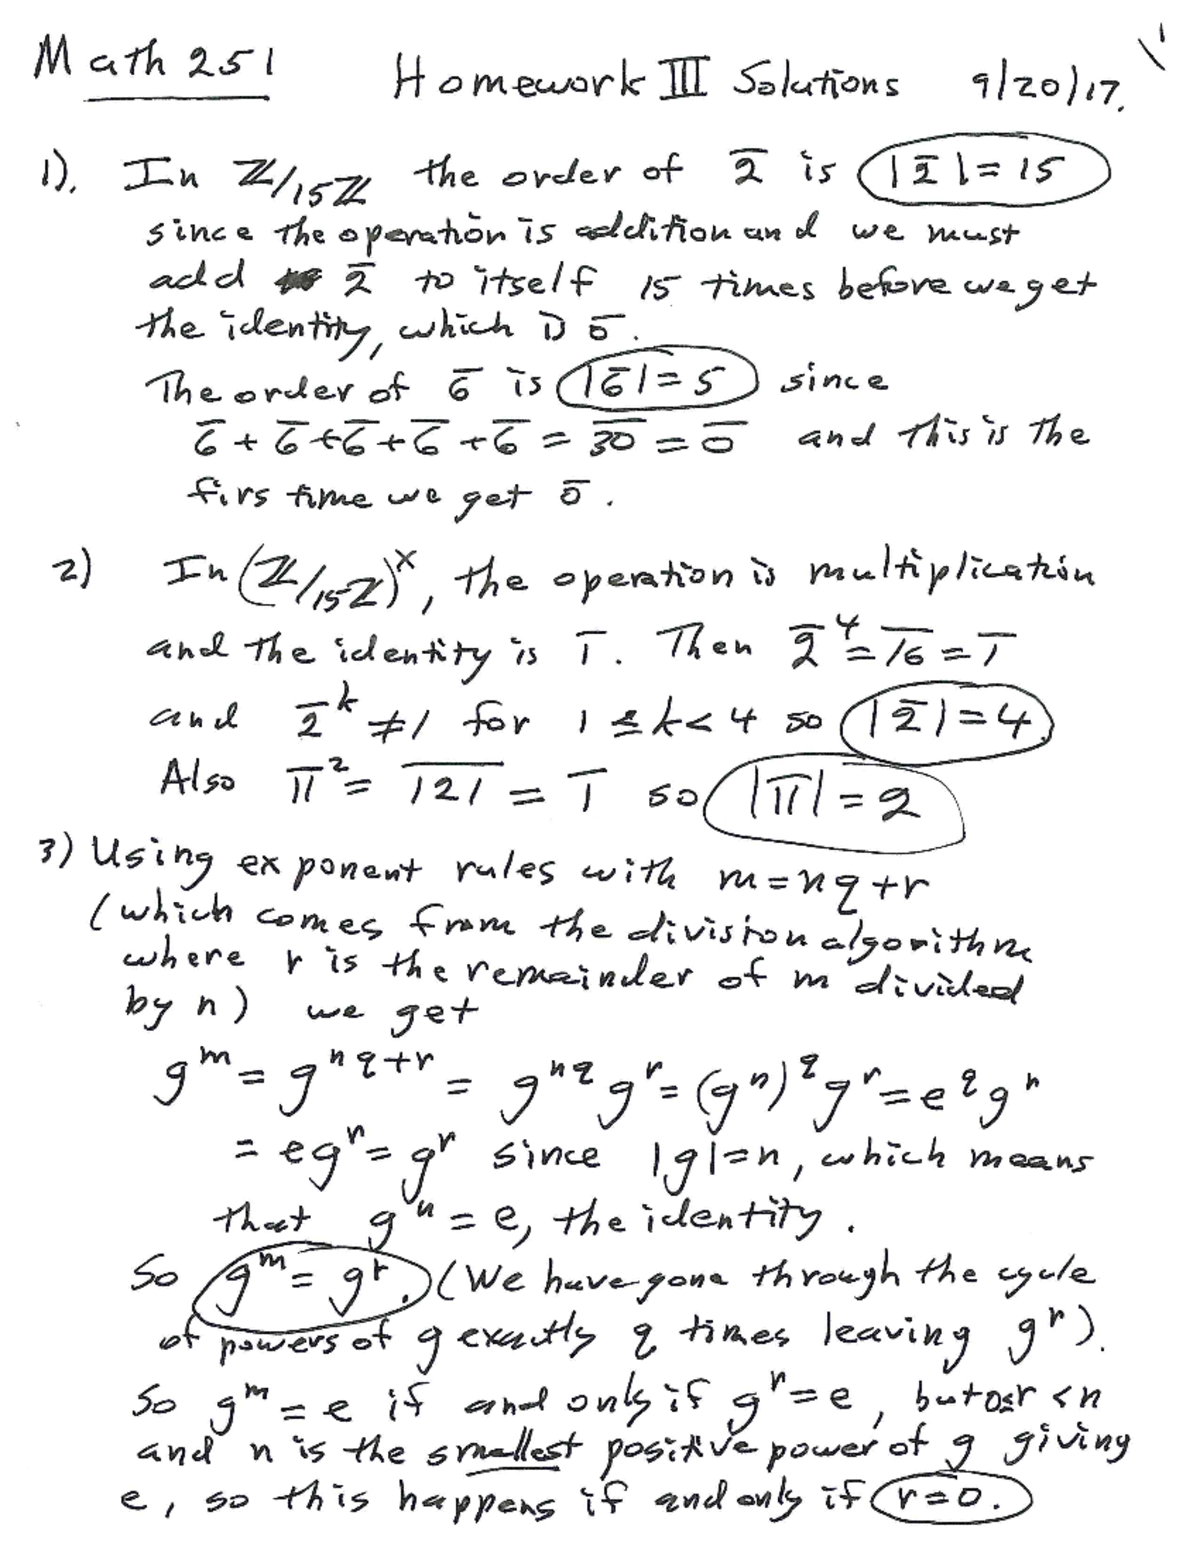 Math 251 Homework III Solutions 9/20/17. 1
1). In ℤ/15ℤ the order of 2̅ is |2̅| = 15
since the operation is addition and we must
add 2̅ to itself 15 times before we get
the identity, which is 0̅.
The order of 6̅ is |6̅| = 5 since
6̅ + 6̅ + 6̅ + 6̅ + 6̅ = 3̅0̅ = 0̅ and this is the
firs time we get 0̅.
2) In (ℤ/15ℤ)^×, the operation is multiplication
and the identity is 1̅. Then 2̅^4 = 1̅6̅ = 1̅
and 2̅^k ≠ 1 for 1 ≤ k < 4 so |2̅| = 4.
Also 1̅1̅^2 = 1̅2̅1̅ = 1̅ so |1̅1̅| = 2
3) Using exponent rules with m = nq + r
(which comes from the division algorithm
where r is the remainder of m divided
by n) we get
g^m = g^{nq+r} = g^{nq} g^r = (g^n)^q g^r = e^q g^r
= e g^r = g^r since |g| = n, which means
that g^n = e, the identity.
So g^m = g^r. (We have gone through the cycle
of powers of g exactly q times leaving g^r).
So g^m = e if and only if g^r = e, but 0≤r < n
and n is the smallest positive power of g giving
e, so this happens if and only if r = 0.